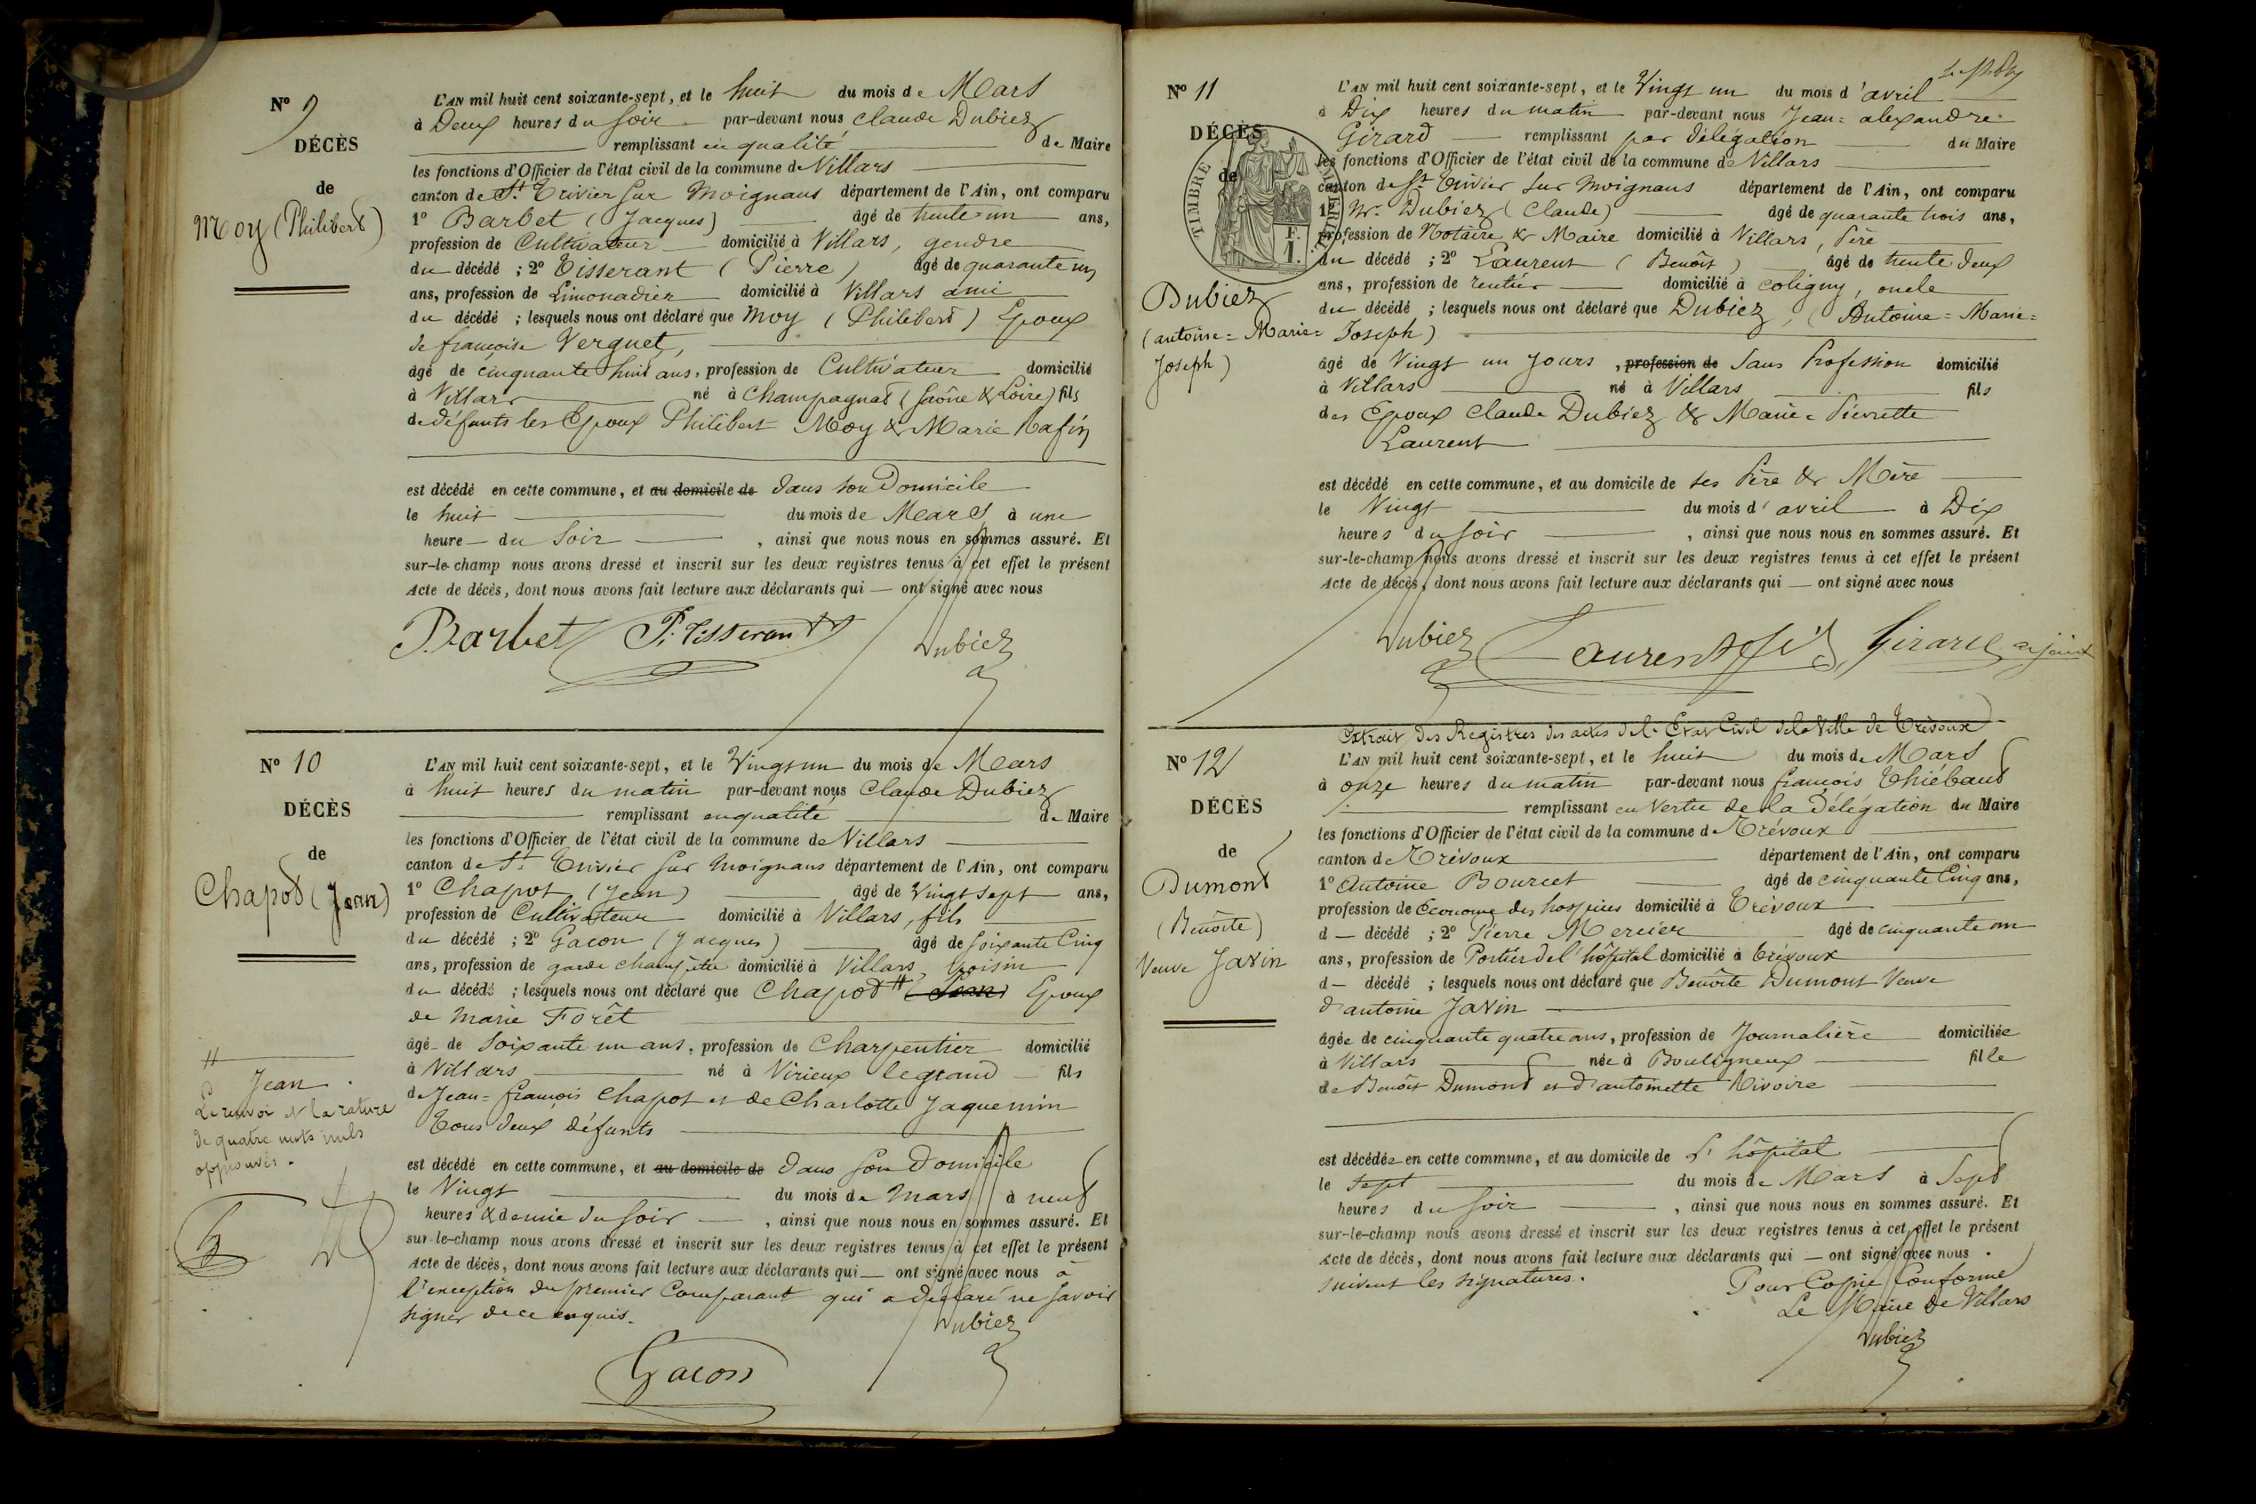 N° 9
DÉCÈS
de
Moy (Philibert)
L'AN mil huit cent soixante-sept, et le huit du mois de Mars
à Deux heures du soir par-devant nous Claude Dubiez
remplissant en qualité de Maire
les fonctions d'Officier de l'état civil de la commune de Villars
canton de St Trivier sur Moignans département de l'Ain, ont comparu
1° Barbet (Jacques) âgé de trente-un ans,
profession de Cultivateur domicilié à Villars, gendre
du décédé ; 2° Tisserant (Pierre) âgé de quarante un
ans, profession de Limonadier domicilié à Villars ami
du décédé ; lesquels nous ont déclaré que Moy (Philibert) Epoux
de françoise Verguet,
âgé de cinquante huit ans, profession de Cultivateur domicilié
à Villars né à Champagnat (Saône & Loire) fils
de défunts les Epoux Philibert Moy & Marie Rafin
est décédé en cette commune, et au domicile de dans son Domicile
le huit du mois de Mars à une
heure du Soir , ainsi que nous nous en sommes assuré. Et
sur-le-champ nous avons dressé et inscrit sur les deux registres tenus à cet effet le présent
Acte de décès, dont nous avons fait lecture aux déclarants qui — ont signé avec nous
Barbet P. Tisserant Dubiez
N° 10
DÉCÈS
de
Chapot (Jean)
L'AN mil huit cent soixante-sept, et le Vingt un du mois de Mars
à huit heures du matin par-devant nous Claude Dubiez
remplissant en qualité de Maire
les fonctions d'Officier de l'état civil de la commune de Villars
canton de St Trivier sur Moignans département de l'Ain, ont comparu
1° Chapot (Jean) âgé de Vingt sept ans,
profession de Cultivateur domicilié à Villars, fils
du décédé ; 2° Gacon (Jacques) âgé de soixante Cinq
ans, profession de garde champêtre domicilié à Villars, Voisin
du décédé ; lesquels nous ont déclaré que Chapot # (Jean) Epoux
de Marie Forêt
âgé de Soixante un ans, profession de Charpentier domicilié
à Villars né à Virieux legrand fils
de Jean=françois Chapot et de Charlotte Jaquemin
Tous deux défunts
# Jean.
Le renvoi et la rature
de quatre mots nuls
approuvés.
est décédé en cette commune, et au domicile de dans son Domicile
le Vingt du mois de Mars à neuf
heures & demie du Soir , ainsi que nous nous en sommes assuré. Et
sur-le-champ nous avons dressé et inscrit sur les deux registres tenus à cet effet le présent
Acte de décès, dont nous avons fait lecture aux déclarants qui — ont signé avec nous à
l'exception du premier Comparant qui a déclaré ne savoir
signer de ce enquis.
Dubiez
Gacon
N° 11
DÉCÈS
de
TIMBRE IMPÉRIAL
F.
1.
Dubiez
(antoine=Marie=
Joseph)
L'AN mil huit cent soixante-sept, et le Vingt un du mois d'avril
à Dix heures du matin par-devant nous Jean=alexandre
Girard remplissant par délégation du Maire
les fonctions d'Officier de l'état civil de la commune de Villars
canton de St Trivier sur Moignans département de l'Ain, ont comparu
1° Mr. Dubiez (Claude) âgé de quarante trois ans,
profession de Notaire & Maire domicilié à Villars, Père
du décédé ; 2° Laurent (Benoît) âgé de trente deux
ans, profession de rentier domicilié à Coligny, oncle
du décédé ; lesquels nous ont déclaré que Dubiez, (Antoine=Marie=
Joseph)
âgé de Vingt un Jours, profession de Sans Profession domicilié
à Villars né à Villars fils
des Epoux Claude Dubiez & Marie Pierrette
Laurent
est décédé en cette commune, et au domicile de ses Père & Mère
le Vingt du mois d'avril à Dix
heures du soir , ainsi que nous nous en sommes assuré. Et
sur-le-champ nous avons dressé et inscrit sur les deux registres tenus à cet effet le présent
Acte de décès, dont nous avons fait lecture aux déclarants qui — ont signé avec nous
Dubiez Laurent fils Girard adjoint
Extrait des Registres des actes de l'Etat Civil de la Ville de Trévoux
N° 12
DÉCÈS
de
Dumont
(Benoîte)
Veuve Javin
L'AN mil huit cent soixante-sept, et le huit du mois de Mars
à onze heures du matin par-devant nous françois Thiébaud
remplissant en Vertu de la délégation du Maire
les fonctions d'Officier de l'état civil de la commune de Trévoux
canton de Trévoux département de l'Ain, ont comparu
1° Antoine Bourcet âgé de cinquante Cinq ans,
profession de Econome des hospices domicilié à Trévoux
d — décédé ; 2° Pierre Mercier âgé de cinquante un
ans, profession de Portier de l'hôpital domicilié à Trévoux
d — décédé ; lesquels nous ont déclaré que Benoîte Dumont Veuve
d'antoine Javin
âgée de cinquante quatre ans, profession de Journalière domiciliée
à Villars née à Bouligneux fille
de Benoît Dumont et d'antoinette Rivoire
est décédée en cette commune, et au domicile de L'hôpital
le Sept du mois de Mars à Sept
heures du Soir , ainsi que nous nous en sommes assuré. Et
sur-le-champ nous avons dressé et inscrit sur les deux registres tenus à cet effet le présent
Acte de décès, dont nous avons fait lecture aux déclarants qui — ont signé avec nous.
suivent les signatures.
Pour Copie Conforme
Le Maire de Villars
Dubiez